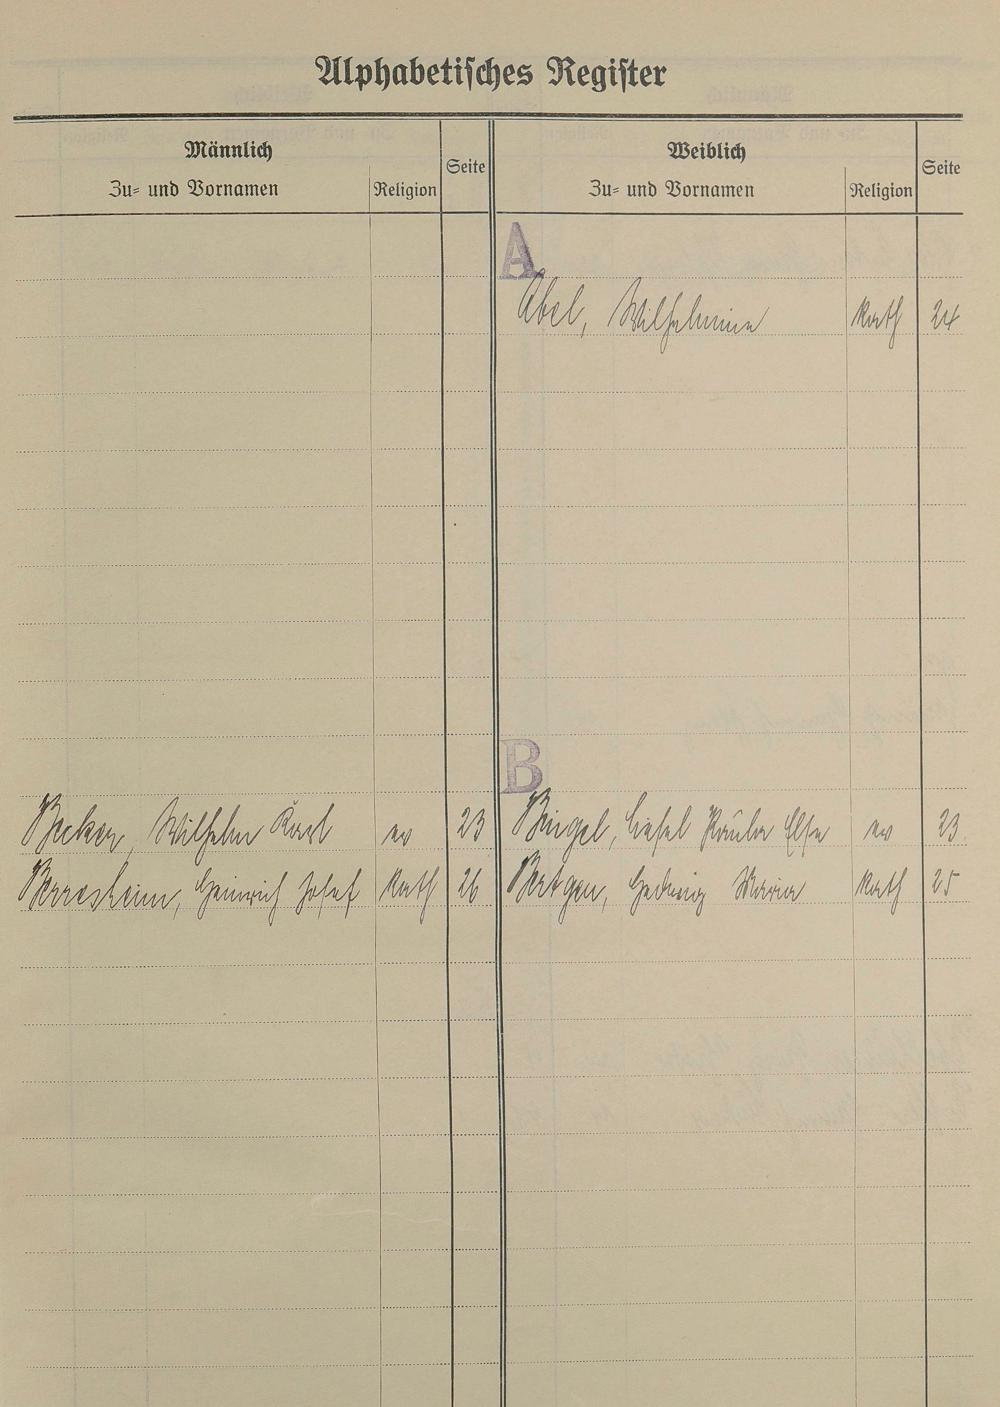 Alphabetisches Register
Männlich
Zu= und Vornamen
Religion
Seite
Weiblich
Zu= und Vornamen
Religion
Seite
A
Abel, Wilhelmine kath 24
B
Becker, Wilhelm Karl ev 23
Bingel, Liesel Paula Else ev 23
Berresheim, Heinrich Josef kath 26
Betgen, Hedwig Maria kath 25